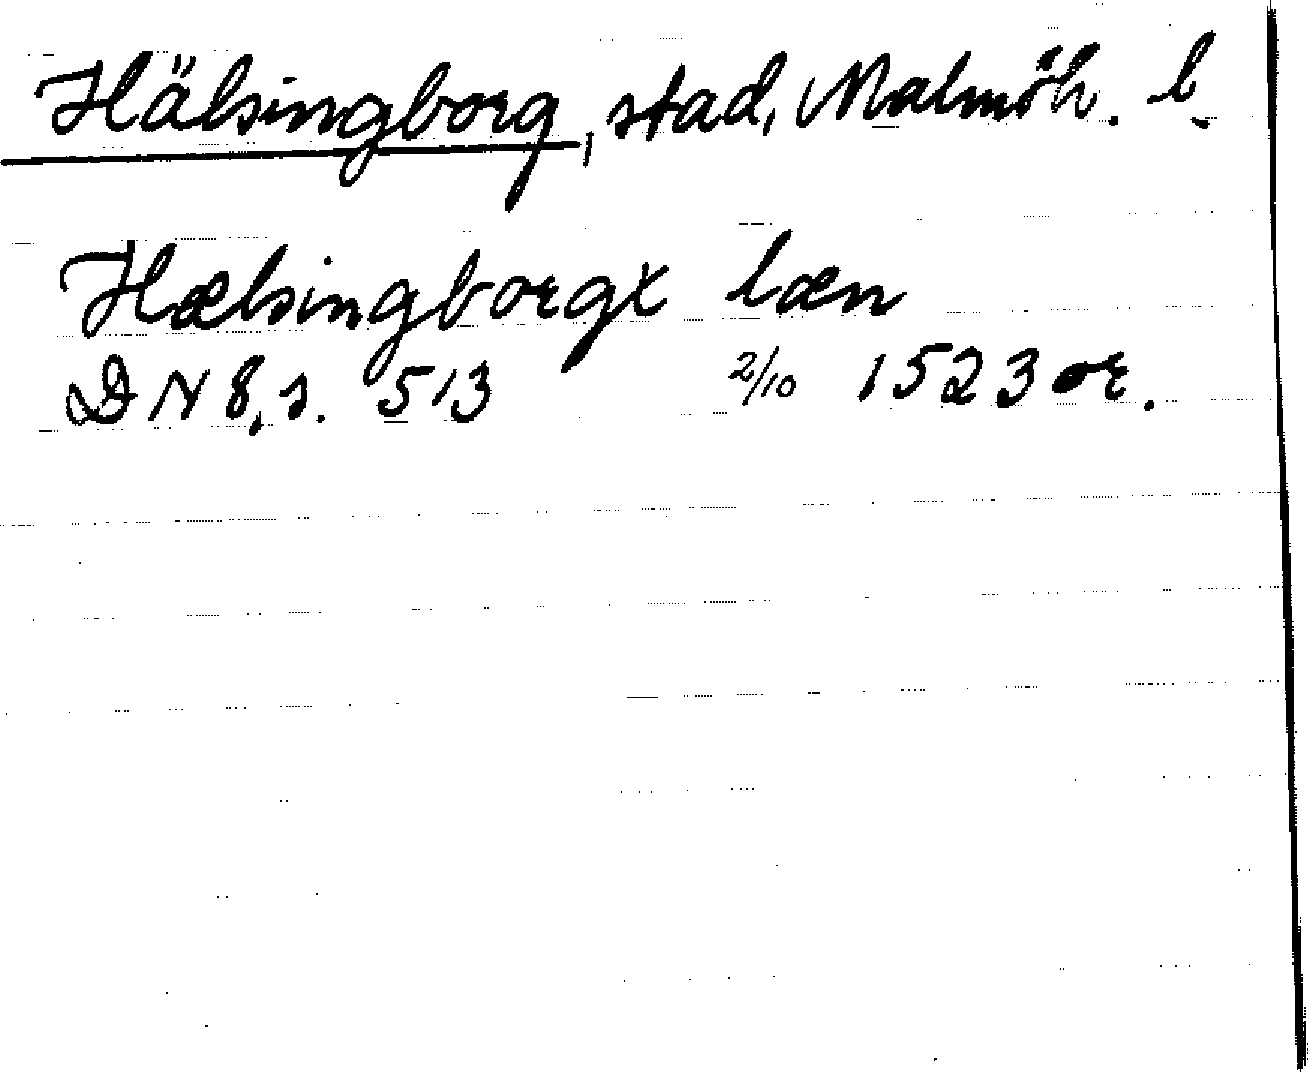 Hälsingborg, stad, Malmöh. l.
Hælsingborgx læn
DN 8, s. 513 2/10 1523 or.